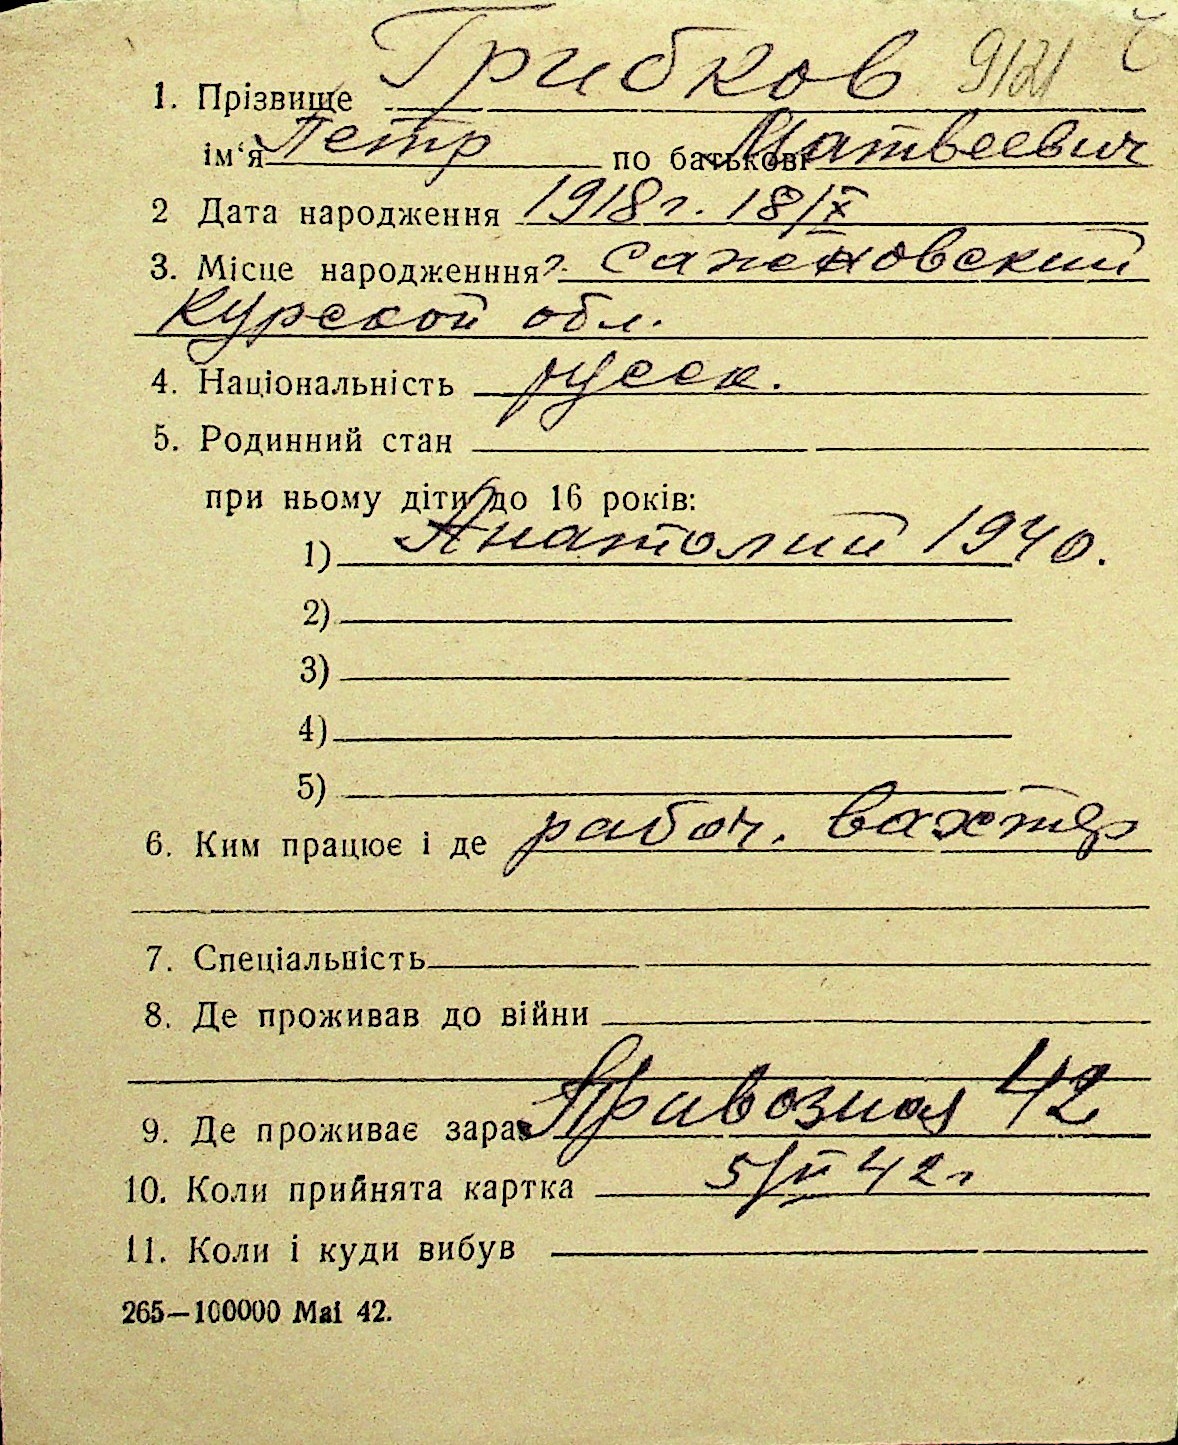 1. Прізвище Грибков 9121
ім‘я Петр по батькові Матвеевич
2 Дата народження 1918 г. 18/X
3. Місце народженння г. Саженовский
Курской обл.
4. Національність русск.
5. Родинний стан
при ньому діти до 16 років:
1) Анатолий 1940.
2)
3)
4)
5)
6. Ким працює і де рабоч. вахтер
7. Спеціальність
8. Де проживав до війни
9. Де проживає зараз Привозная 42
10. Коли прийнята картка 5/VI 42 г
11. Коли і куди вибув
265—100000 Mai 42.